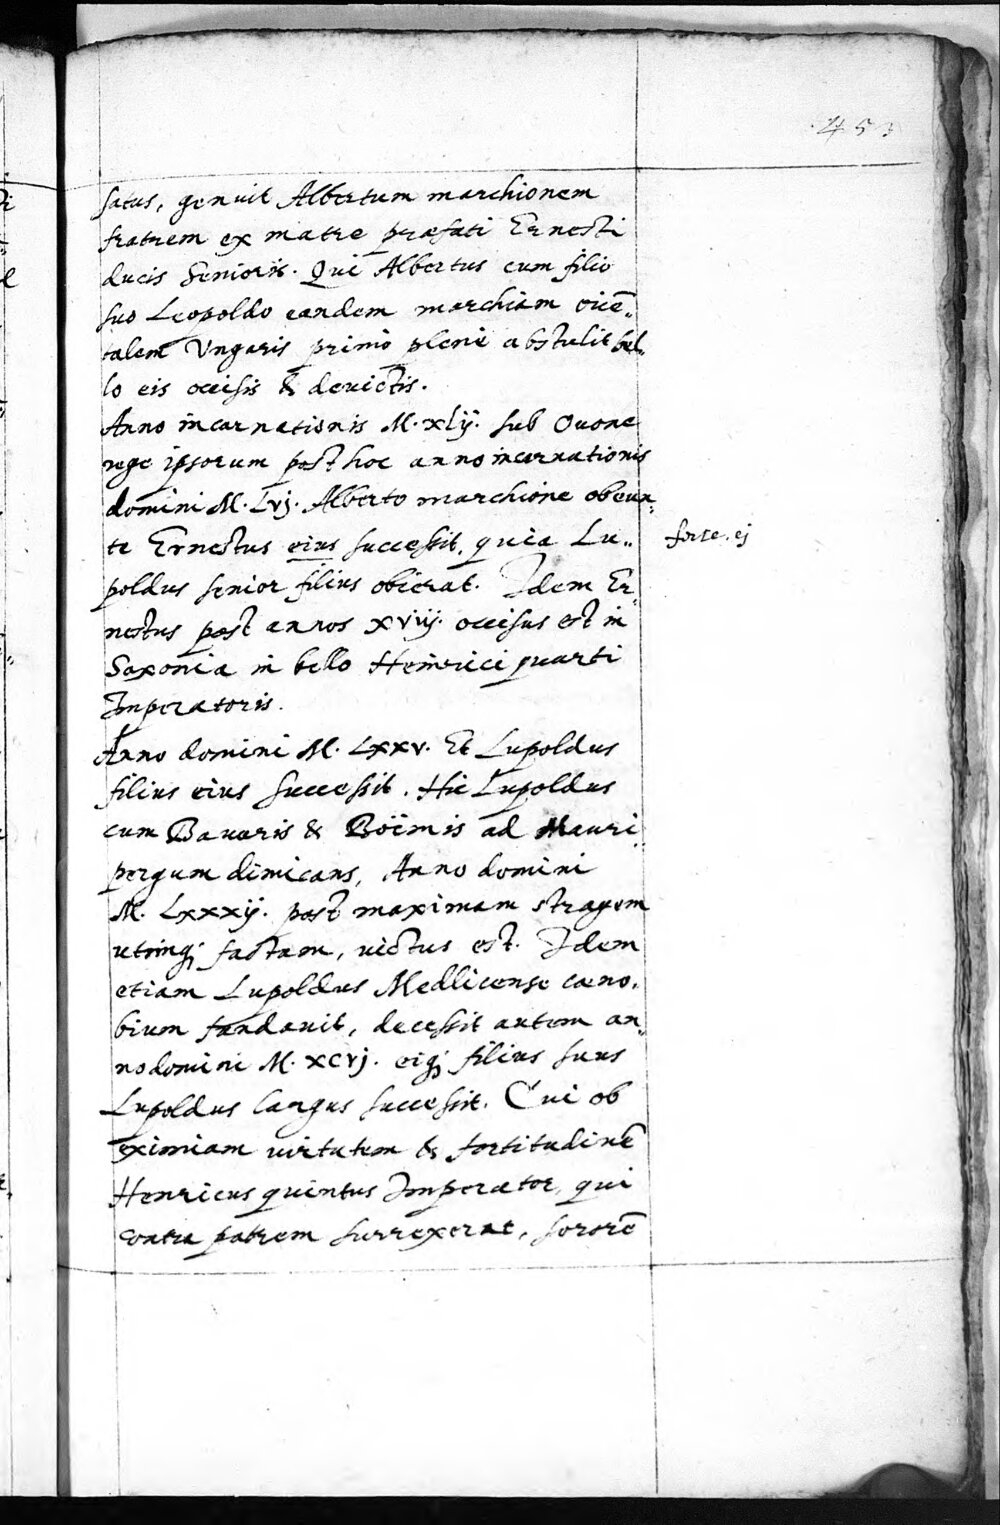 453
satus, genuit Albertum marchionem
fratrem ex matre præfati Ernesti
ducis Senioris. Qui Albertus cum filio
suo Leopoldo eandem marchiam oriē„
talem Vngaris primò plenè abstulit bel„
lo eis occisis & deuictis.
Anno incarnationis M. xlij. sub Ouone
rege ipsorum post hoc anno incarnationis
domini M. Lvj. Alberto marchione obeun„
te Ernestus eius successit, quia Lu„
forte. ej
poldus senior filius obierat. Idem Er„
nestus post annos xviij. occisus est in
Saxonia in bello Heinrici quarti
Imperatoris.
Anno domini M. Lxxv. Et Lupoldus
filius eius successit. Hic Lupoldus
cum Bauaris & Boëmis ad Mauri„
pergum dimicans, Anno domini
M. Lxxxij. post maximam stragem
utrinq; factam, uictus est. Idem
etiam Lupoldus Medlicense cæno„
bium fundauit, decessit autem an„
no domini M. xcvj. eiq; filius suus
Lupoldus largus successit. Cui ob
eximiam uirtutem & fortitudinē
Henricus quintus Imperator, qui
contra patrem surrexerat, sororē